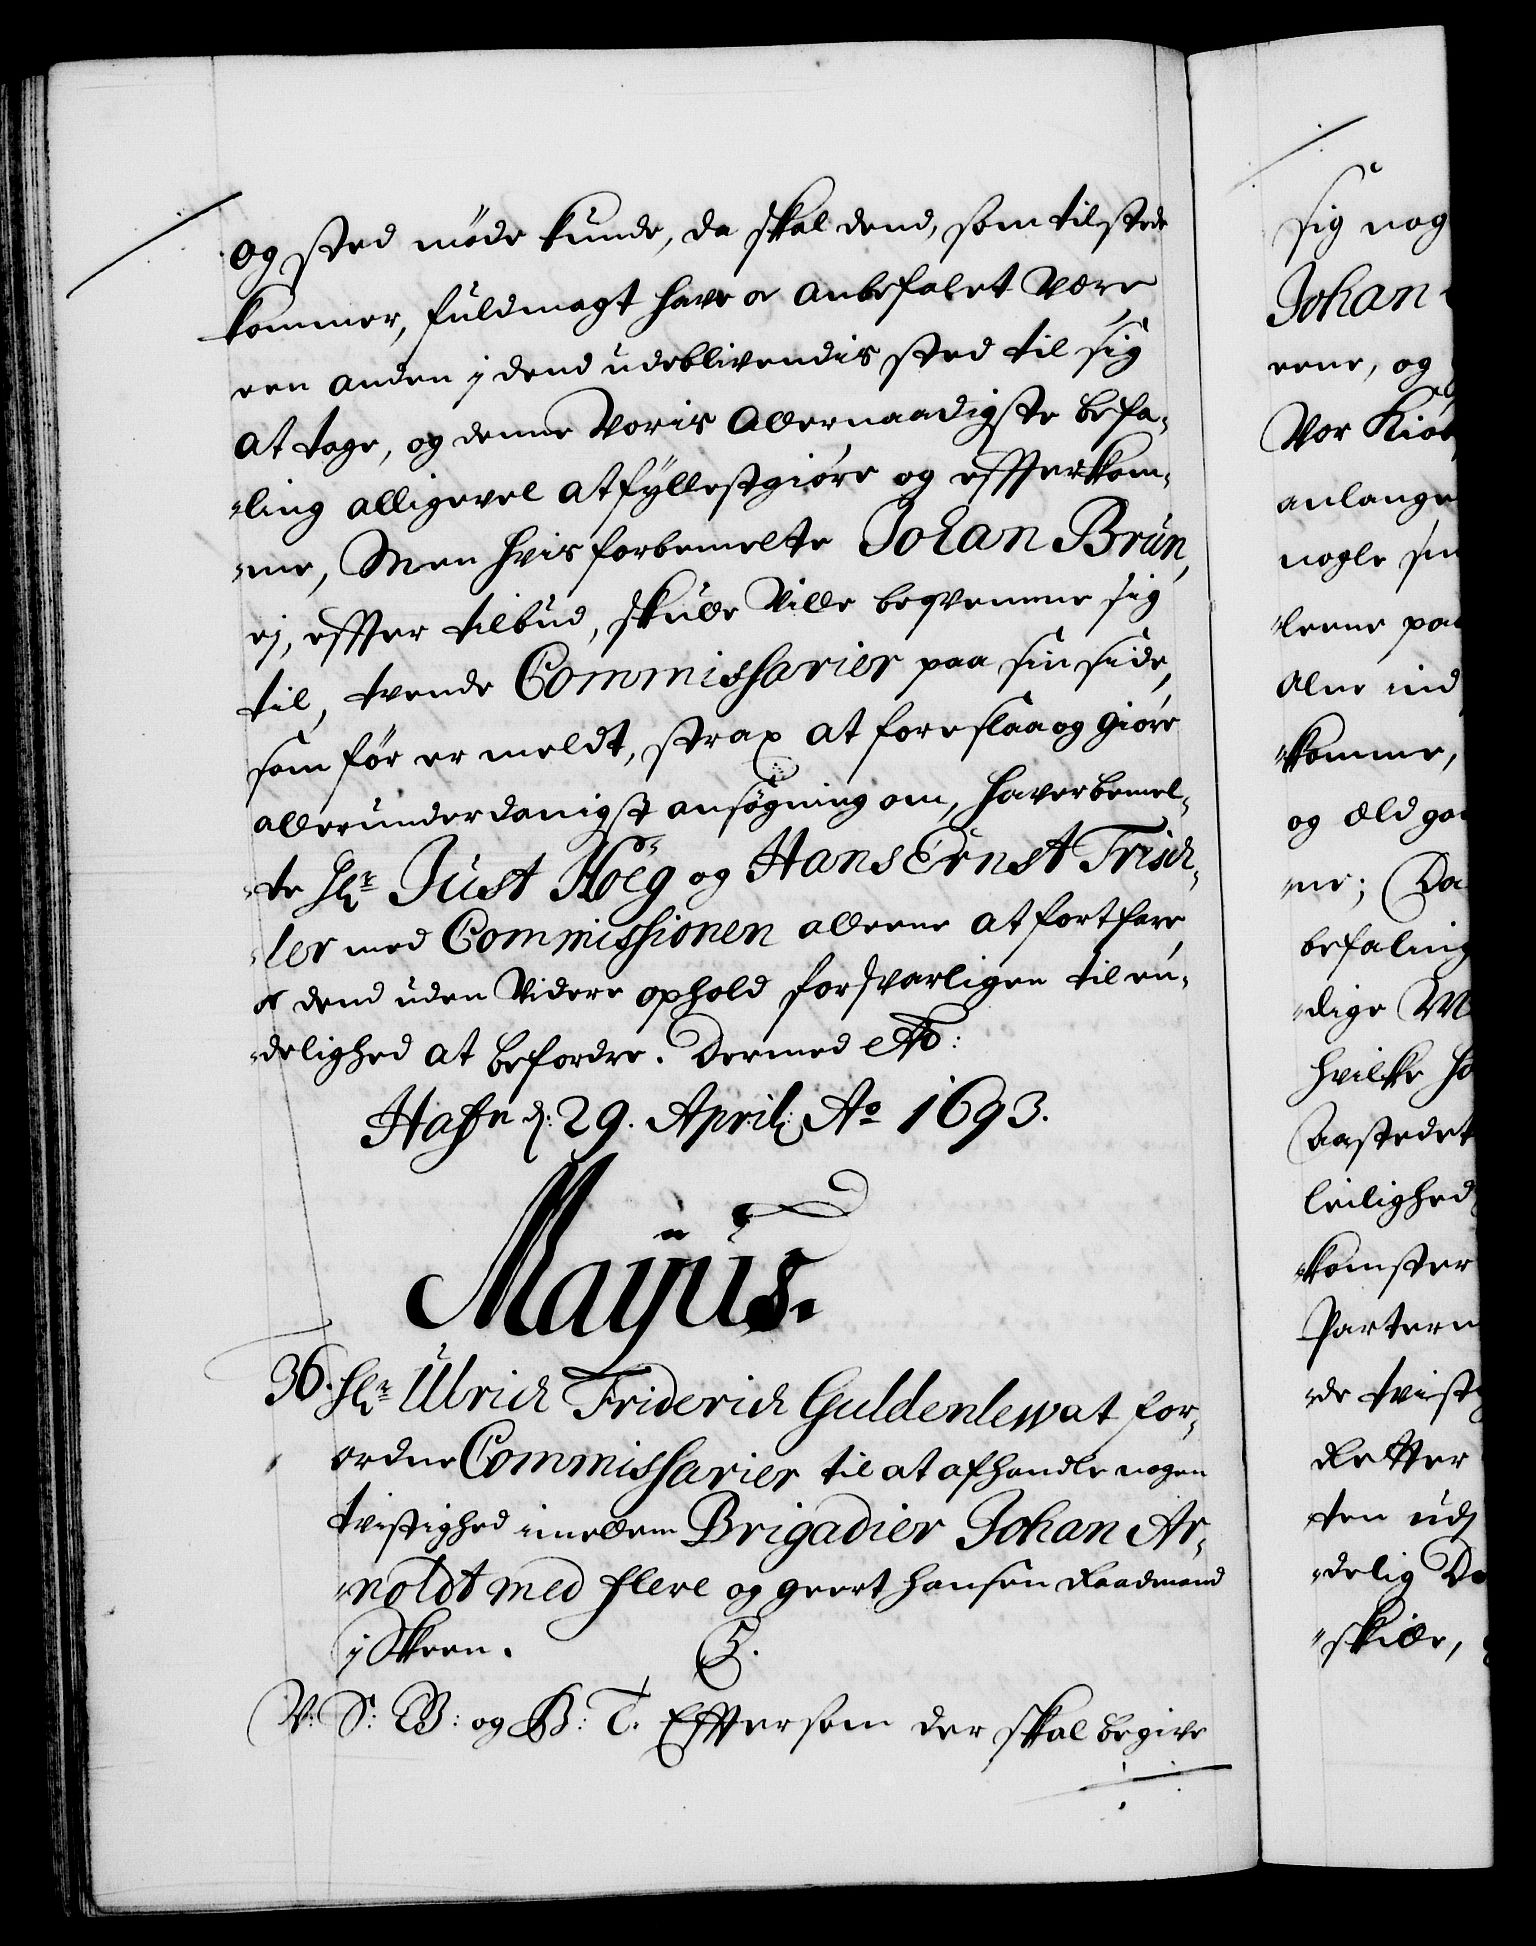 og sted møde kunde, da skal dend, som tilstede
kommer, fuldmagt have oc anbefalet være
een anden j dend udeblivendis sted til sig
at tage, og denne Voris allernaadigste befa-
ling alligevel at fyllestgiøre og effterkom-
me, Men hvis forbemelte Johan Brun,
ej, effter tilbud, skulle ville beqvemme sig
til, tvende Commissarier paa sin side,
som før er meldt, strax at foreslaa og giøre
allerunderdanigst ansøgning om, haver bemel-
te Hr Just Höeg og Hans Ernst Trisch-
ler med Commissionen alleene at fortfare
oc dend uden videre ophold forsvarligen til en-
delighed at befordre. Dermed
Haffn d: 29. April: Ao 1693.
Mayus.
36. Hr Ulrich Friderich Guldenlewat for-
ordne Commissarier til at afhandle nogen
tvistighed imellem Brigadier Johan Ar-
noldt med flere og geert hansen Raadmand
j Skeen. C5.
V: S: B: og G: T. Effter som der skal begive
sig nog
Johan
eene, og
Vor
anlange
nogle
leene paa
alne ind
komme,
og
me; Da
befaling
dige
hvilke
Aastedet
leilighed
komster
Parterne
de tvist
Retter
ten uds
delig
skille,